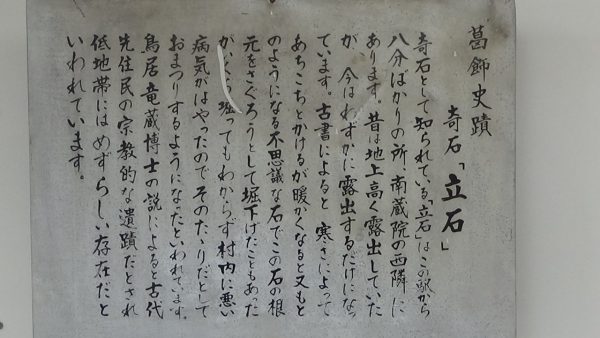 葛飾史蹟
奇石「立石」
奇石として知られている「立石」はこの駅から
八分ばかりの所南蔵院の西隣に
あります。昔は地上高く露出していた
が 今はわずかに露出するだけになっ
ています。古書によると 寒さによって
あちこちとかけるが暖かくなると又もと
のようになる不思議な石でこの石の根
元をさぐろうとして堀下げたこともあった
がなん日堀ってもわからず村内に悪い
病気がはやったので そのたゝりだとして
おまつりするようになったといわれています。
鳥居竜蔵博士の説によると古代
先住民の宗教的な遺蹟だとされ
低地帯にはめずらしい存在だと
いわれています。